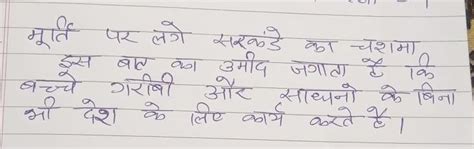 मूर्ति पर लगे सरकंडे का चशमा
इस बात का उमीद जगाता है कि
बच्चे गरीबी और साधनो के बिना
भी देश के लिए कार्य करते है।